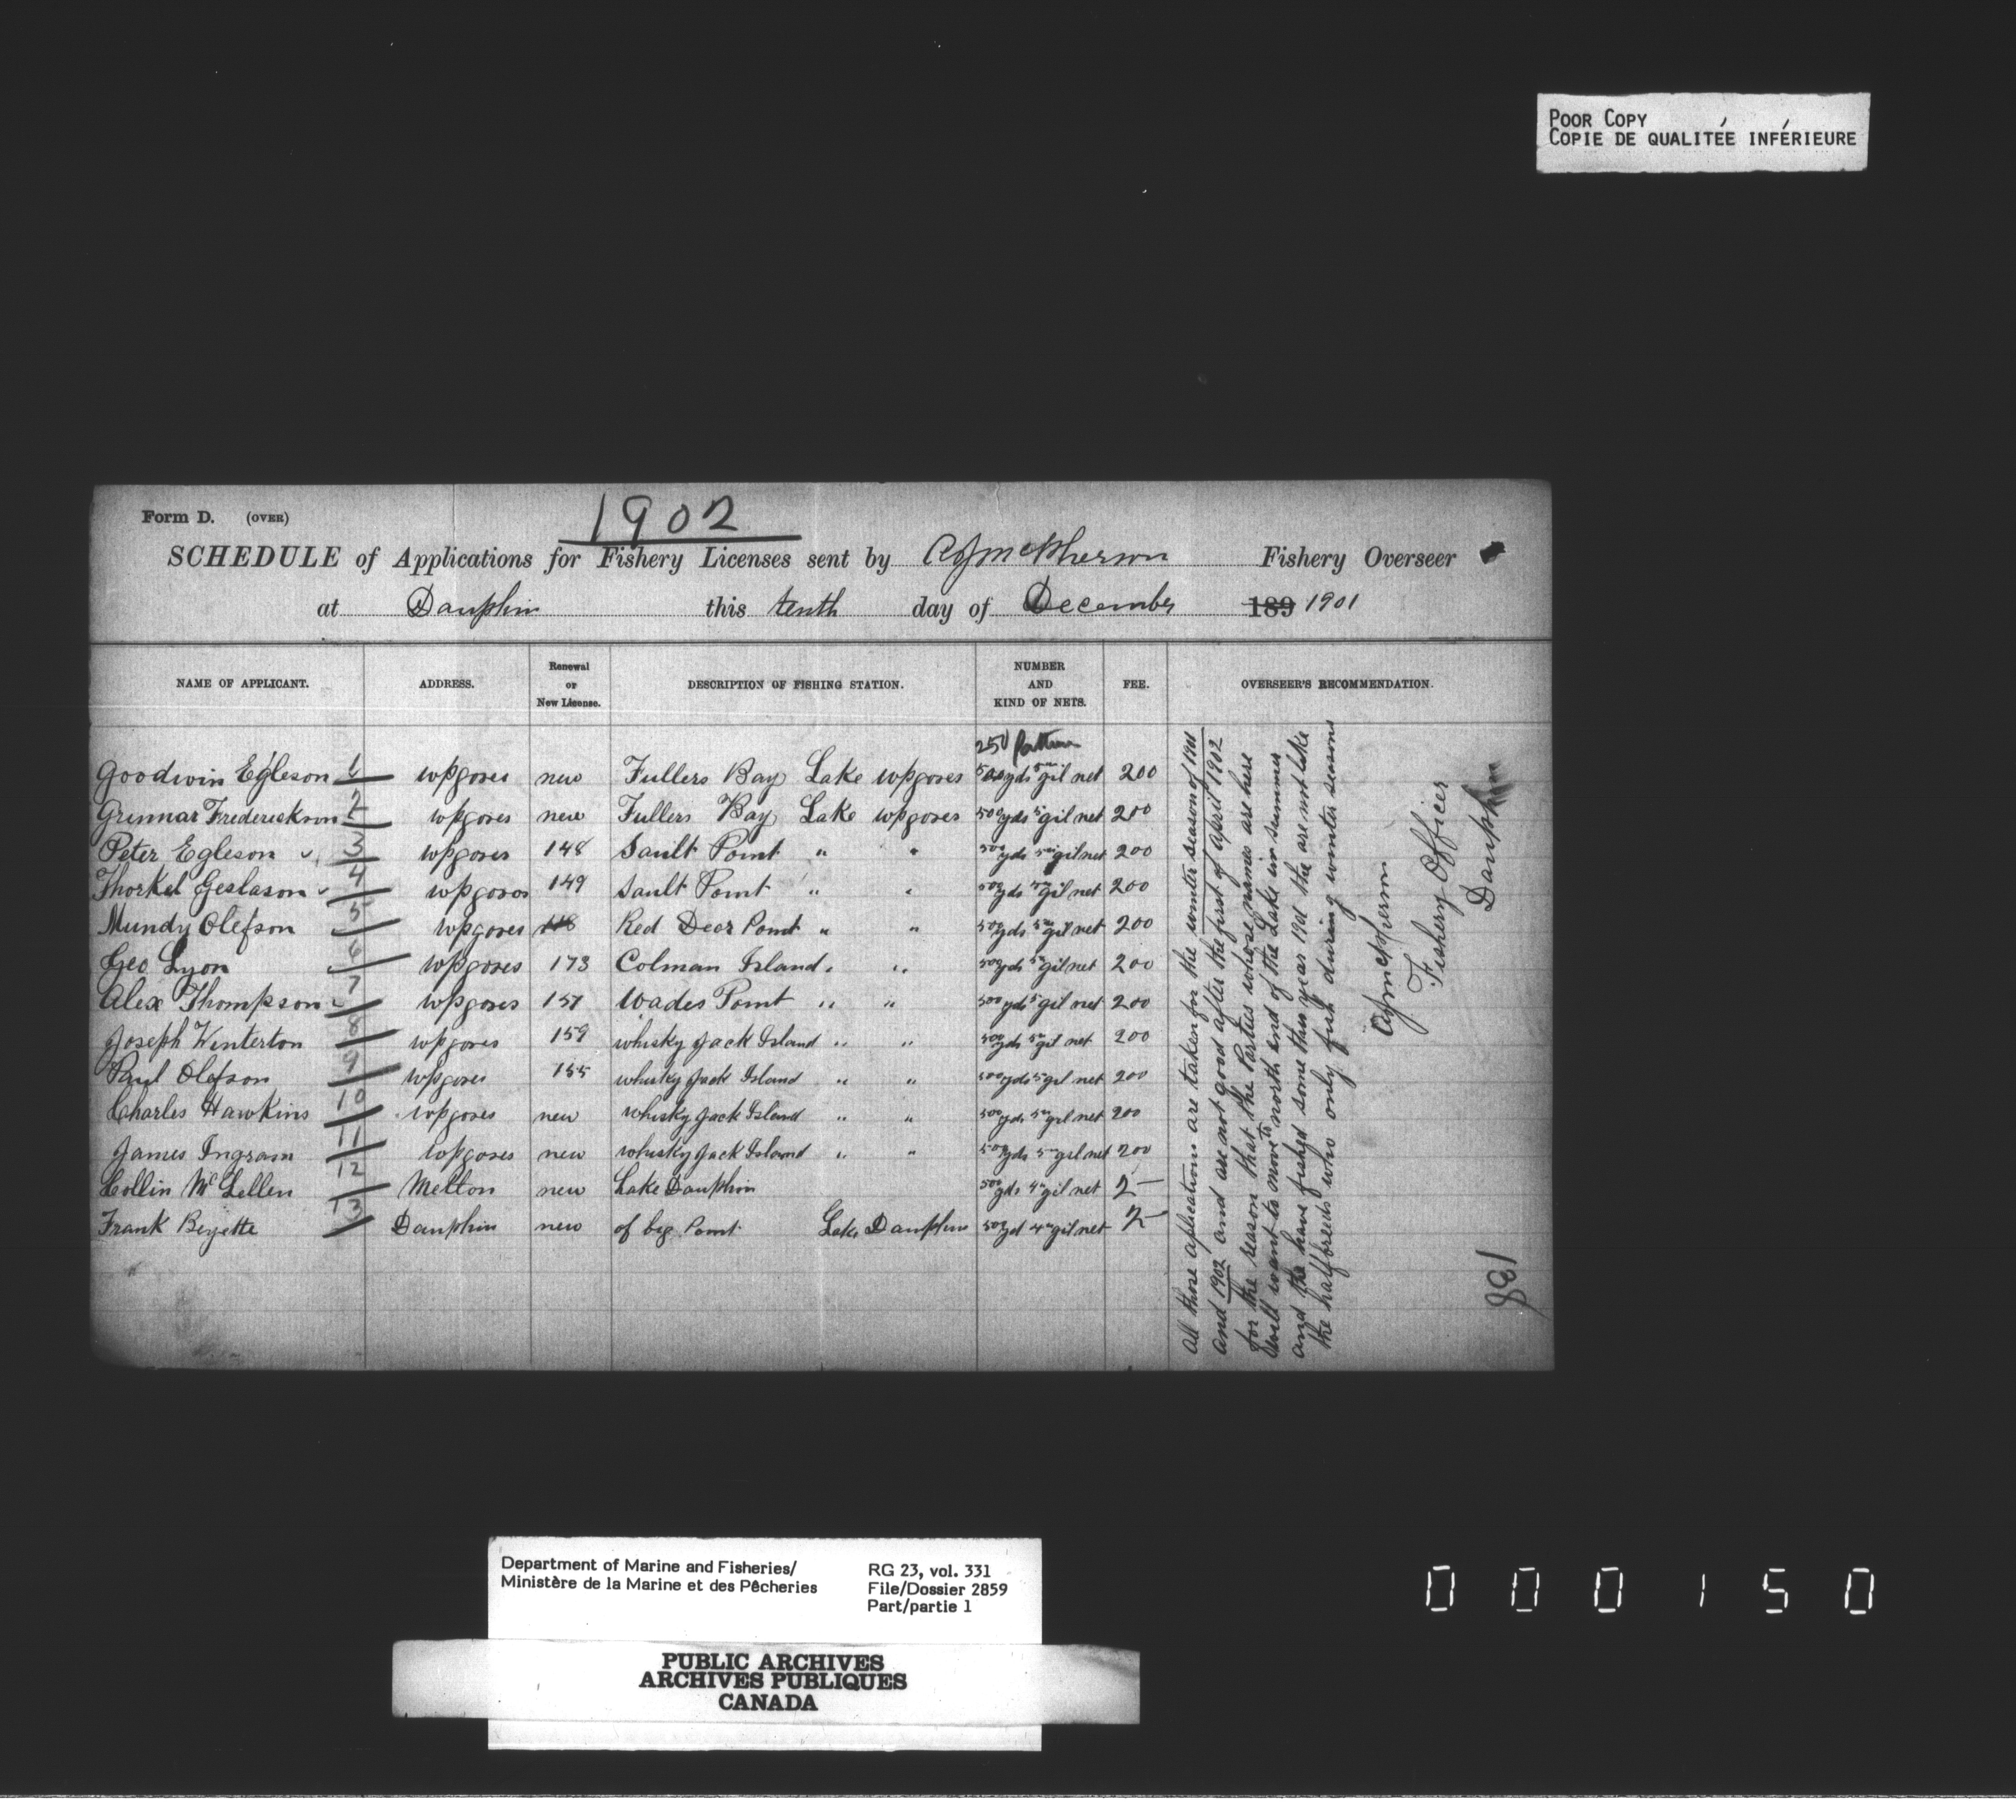 POOR COPY
COPIE DE QUALITÉE INFÉRIEURE
Form D. (OVER)
1902
SCHEDULE of Applications for Fishery Licenses sent by McPherson Fishery Overseer
at Dauphin this tenth day of December 189 1901
NAME OF APPLICANT. ADDRESS. Renewal or New License. DESCRIPTION OF FISHING STATION. NUMBER AND KIND OF NETS. FEE. OVERSEER'S RECOMMENDATION.
250
Goodwin Egleson 1 wpgoses new Fullers Bay Lake wpgoses 500 yds 5in gil net 200
Gunnar Frederickson 2 wpgoses new Fullers Bay Lake wpgoses 500 yds 5in gil net 200
Peter Egleson 3 wpgoses 148 Sault Point " " 500 yds 5in gil net 200
Thorkel Geslason 4 wpgoses 149 Sault Point " " 500 yds 5in gil net 200
Mundy Olefson 5 wpgoses Red Deer Point " " 500 yds 5in gil net 200
Geo Lyon 6 wpgoses 173 Colman Island " " 500 yds 5in gil net 200
Alex Thompson 7 wpgoses 157 Wades Point " " 500 yds 5in gil net 200
Joseph Winterton 8 wpgoses 159 whisky Jack Island " " 500 yds 5in gil net 200
Paul Olefson 9 wpgoses 155 whisky Jack Island " " 500 yds 5in gil net 200
Charles Hawkins 10 wpgoses new whisky Jack Island " " 500 yds 5in gil net 200
James Ingram 11 wpgoses new whisky Jack Island " " 500 yds 5in gil net 200
Collin McLellen 12 Melton new Lake Dauphin 500 yds 4in gil net 2-
Frank Beyette 13 Dauphin new of big Point Lake Dauphin 500 yd 4in gil net 2-
All those applications are taken for the winter season of 1901
and 1902 and are not good after the first of april 1902
for the reason that the Parties whose names are here
will want to move to north end of the Lake in summer
and the have fished some this year 1901 the are not like
the halfbreeds who only fish during winter seasons
McPherson
Fishery Officer
Dauphin
188
Department of Marine and Fisheries/
Ministère de la Marine et des Pêcheries
RG 23, vol. 331
File/Dossier 2859
Part/partie 1
PUBLIC ARCHIVES
ARCHIVES PUBLIQUES
CANADA
000150